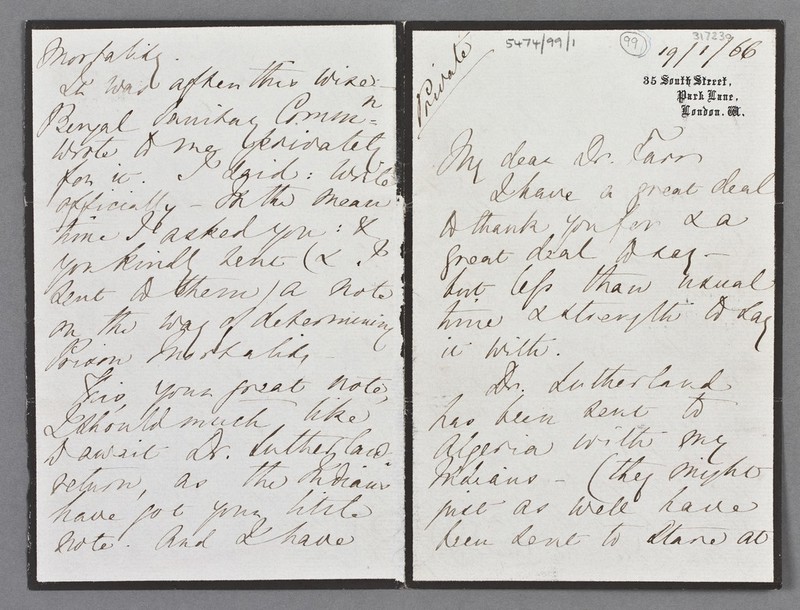 5474/99/1
99
317239
Private
19/1/66
35 South Street,
Park Lane,
London. W.
My dear Dr. Farr
I have a great deal
to thank you for & a
great deal to say -
but less than usual
time & strength to say
it with.
Dr. Sutherland
has been sent to
Algeria with my
Indians - (they might
just as well have
been sent to stare at
Mortality.
It was after this wise -
Bengal Sanitary Commn =
wrote to me privately
for it. I said: write
officially - In the mean
time I asked you: &
you kindly sent (& I
sent to them) a note
on the way of determining
Prison Mortality -
your great note,
I should much like
to await Dr. Sutherland's
return, as the Indians
have got your little
note. And I have